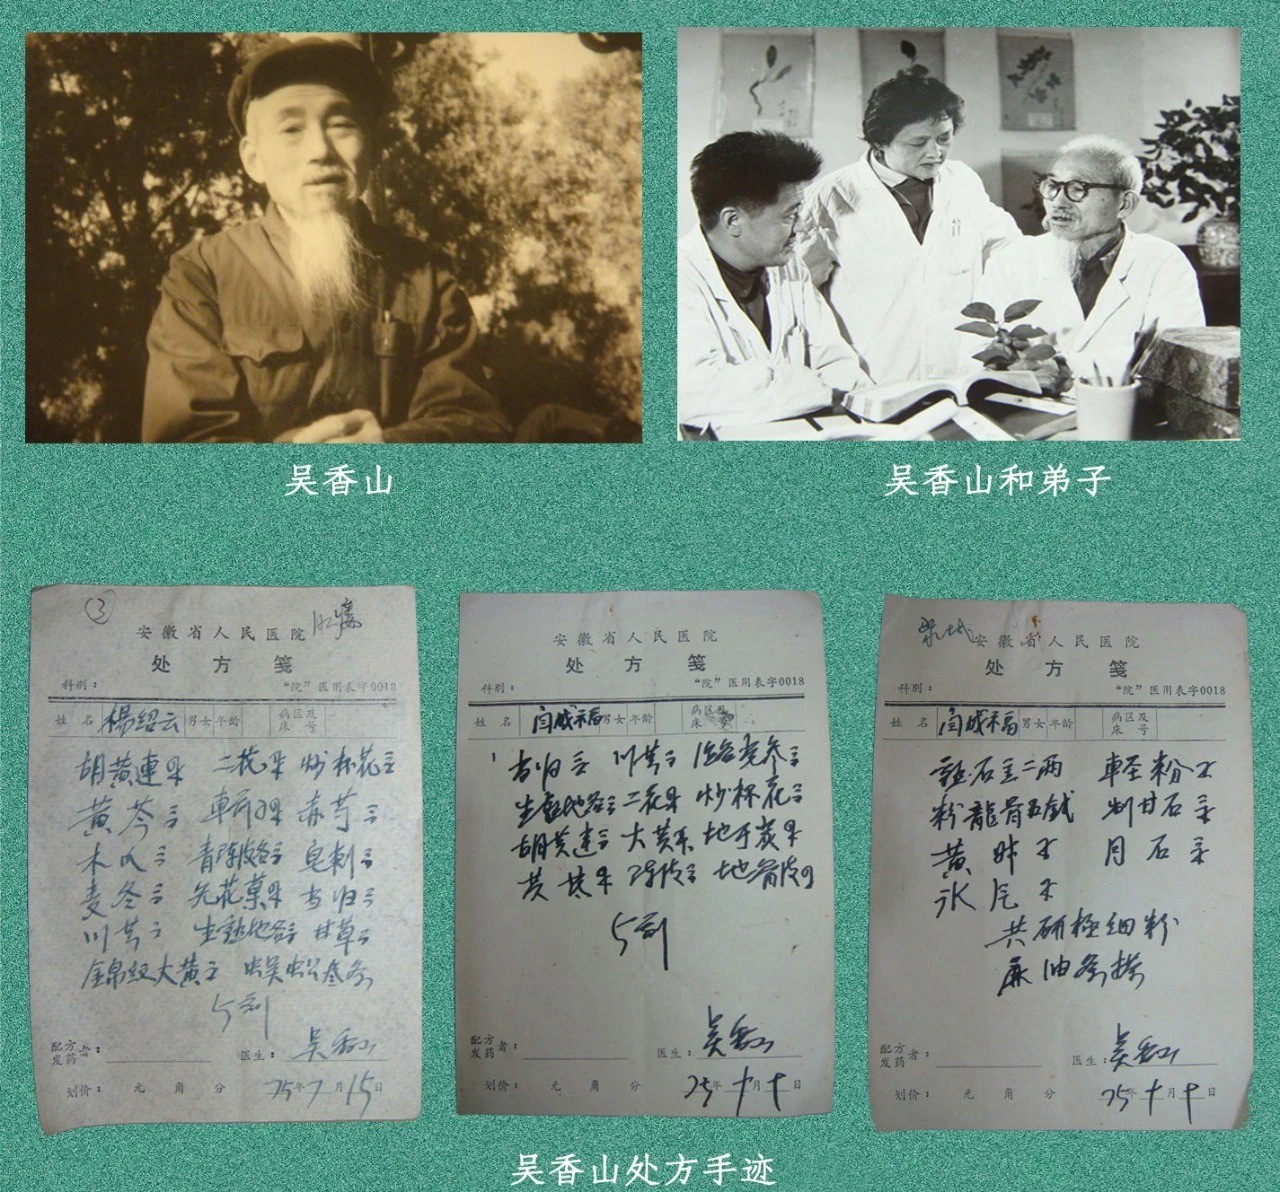 吴香山
吴香山和弟子
3
安徽省人民医院
处方笺
科别： “院”医用表字0018
姓名 楊绍云 男女 年龄 病区及床号
胡黄連 二花 炒槐花
黄芩 車前 赤芍
木瓜 青陈皮各 皂刺
麦冬 天花粉 当归
川芎 生熟地各 甘草
錦紋大黄 蜈蚣叁条
5剂
配方发药者： 医生： 吴香山
划价： 元 角 分 75年7月15日
安徽省人民医院
处方笺
科别： “院”医用表字0018
姓名 闫成福 男女 年龄 病区及床号
当归 川芎 潞党参
生熟地各 二花 炒槐花
胡黄連 大黄 地于炭
黄芩 陈皮 地骨皮
5剂
配方发药者： 医生： 吴香山
划价： 元 角 分 75年十月十日
安徽省人民医院
处方笺
科别： “院”医用表字0018
姓名 闫成福 男女 年龄 病区及床号
熟石羔二两 輕粉
粉龍骨五戋 制甘石
黄 月石
冰片
共研極细粉
麻油条搽
配方发药者： 医生： 吴香山
划价： 元 角 分 75年十月十日
吴香山处方手迹